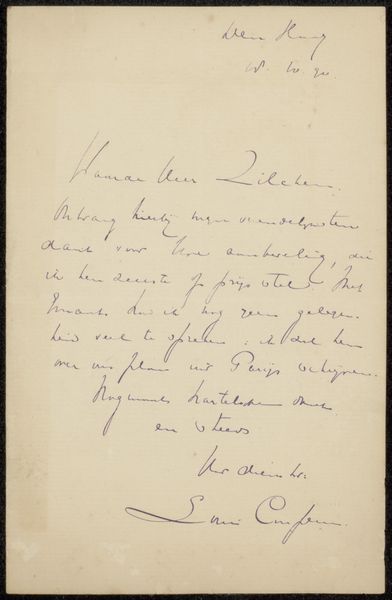 Den Haag
Waarde Heer Zilcken.
Ontvang hierbij mijn vriendelijksten
dank voor Uwe aanbeveling, die
ik ten zeerste op prijs stel. Met
had ik nog geen gelegen-
heid veel te spreken: ik zal hem
over ons plan uit Parijs schrijven.
Nogmaals hartelijken dank
en steeds
Uw dienstw.
Louis Couperus.